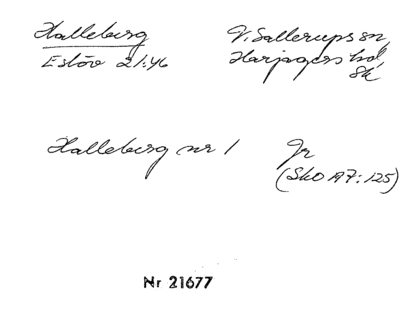 Halleberg
Eslöv 21:46
V. Sallerups sn,
Harjagers hd,
Sk
Halleberg nr 1
Gr
(Sko A7:125)
Nr 21677